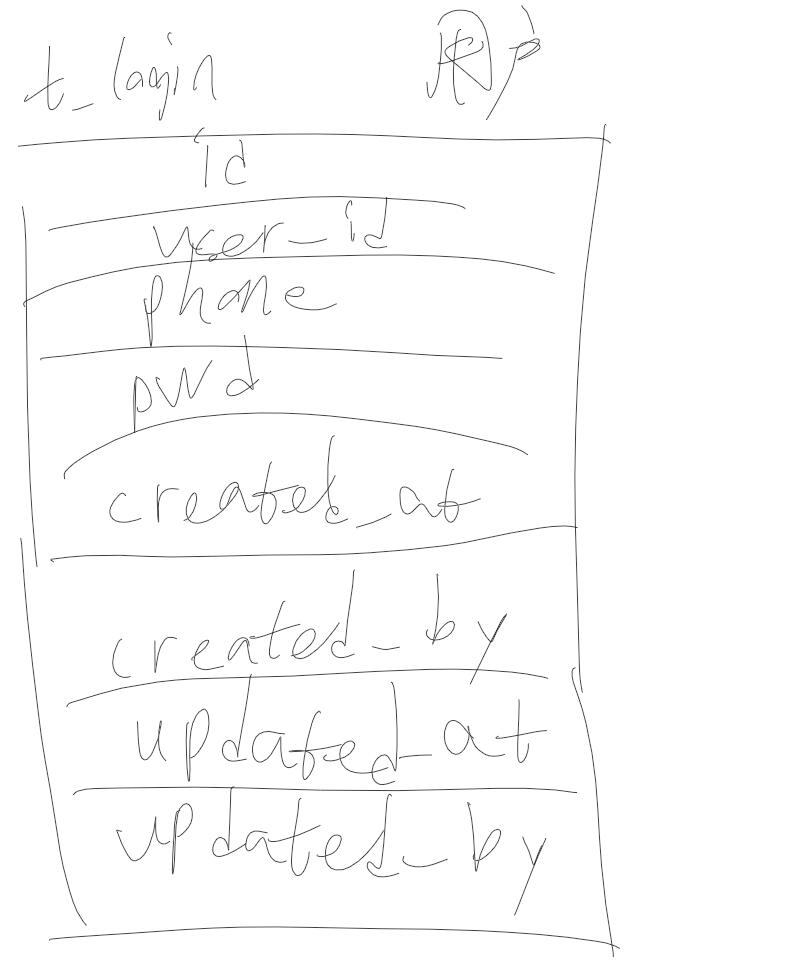 t_login
id
user_id
phone
pwd
created_at
created_by
updated_at
updated_by